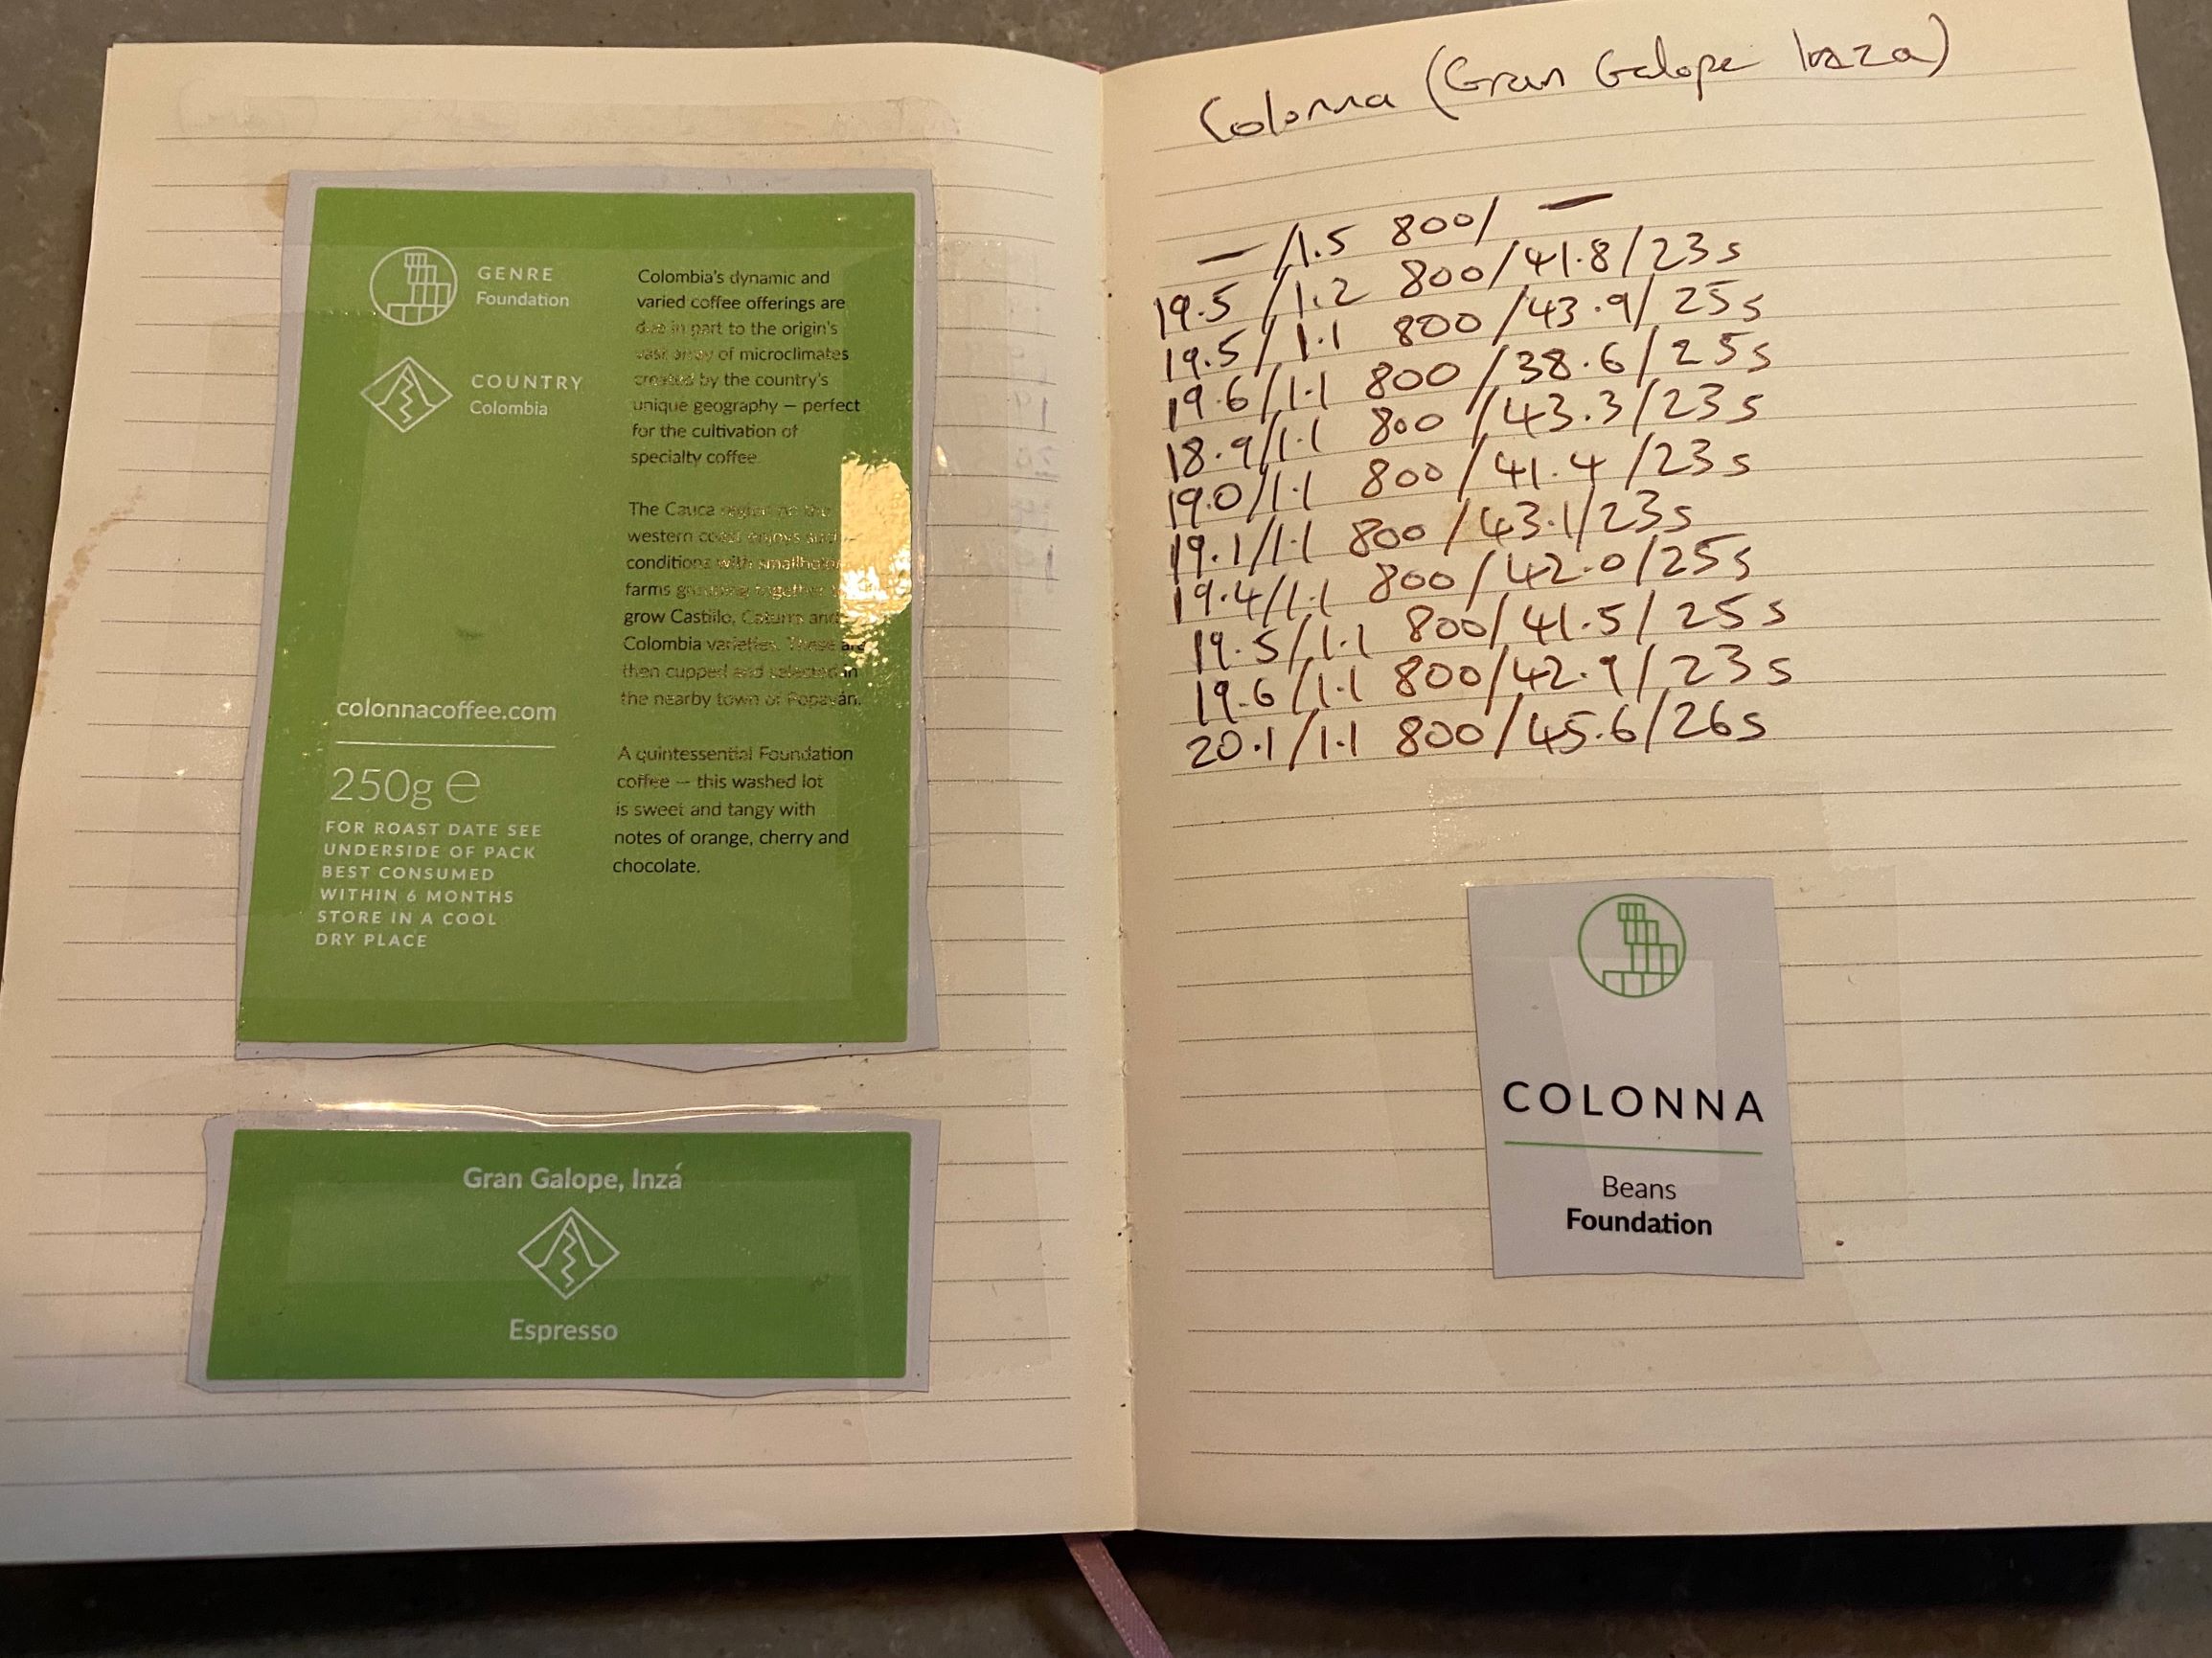 GENRE
Foundation
COUNTRY
Colombia
colonnacoffee.com
250g ℮
FOR ROAST DATE SEE
UNDERSIDE OF PACK
BEST CONSUMED
WITHIN 6 MONTHS
STORE IN A COOL
DRY PLACE
Colombia's dynamic and
varied coffee offerings are
due in part to the origin's
vast array of microclimates
created by the country's
unique geography – perfect
for the cultivation of
specialty coffee.
The Cauca region on the
western coast enjoys such
conditions with smallholder
farms grouping together to
grow Castillo, Caturra and
Colombia varieties. These are
then cupped and selected in
the nearby town of Popayán.
A quintessential Foundation
coffee – this washed lot
is sweet and tangy with
notes of orange, cherry and
chocolate.
Gran Galope, Inzá
Espresso
Colonna (Gran Galope
— /1.5 800/ —
19.5 /1.2 800/41.8/23s
19.5/1.1 800/43.9/25s
19.6/1.1 800/38.6/25s
18.9/1.1 800/43.3/23s
19.0/1.1 800/41.4/23s
19.1/1.1 800/43.1/23s
19.4/1.1 800/42.0/25s
19.5/1.1 800/41.5/25s
19.6/1.1 800/42.9/23s
20.1/1.1 800/45.6/26s
COLONNA
Beans
Foundation